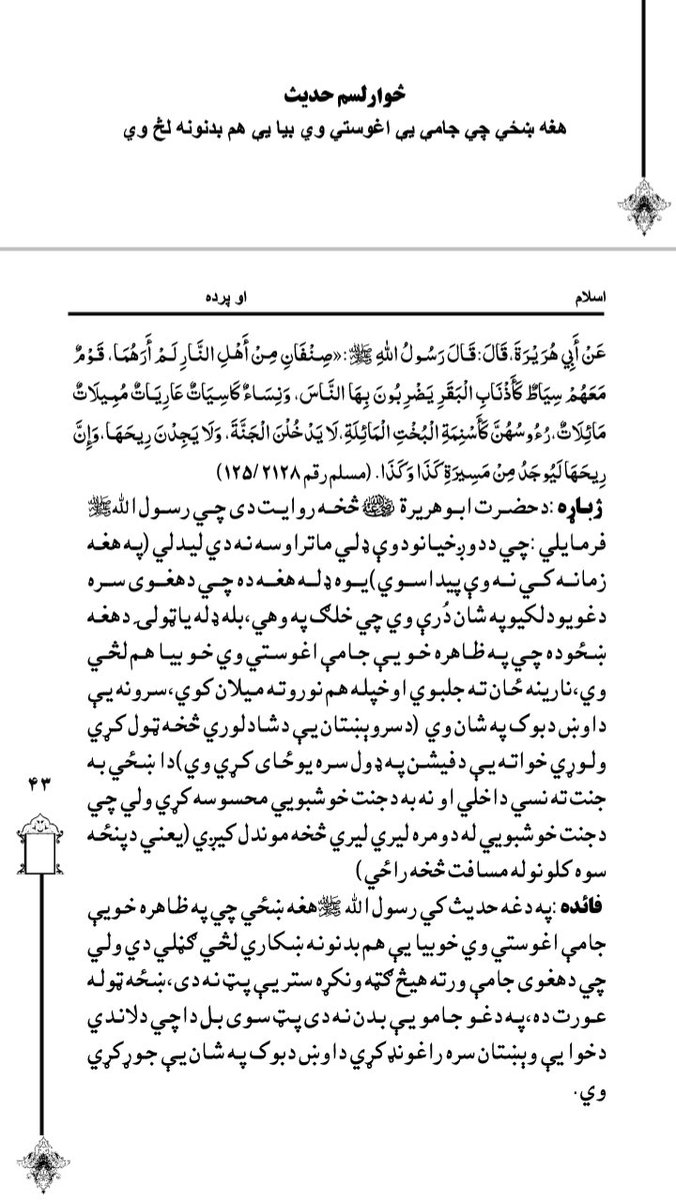 څوارلسم حديث
هغه ښځي چي جامې يې اغوستي وي بيا يې هم بدنونه لڅ وي
اسلام او پرده
عَنْ أَبِي هُرَيْرَةَ، قَالَ: قَالَ رَسُولُ اللهِ ﷺ: «صِنْفَانِ مِنْ أَهْلِ النَّارِ لَمْ أَرَهُمَا، قَوْمٌ
مَعَهُمْ سِيَاطٌ كَأَذْنَابِ الْبَقَرِ يَضْرِبُونَ بِهَا النَّاسَ، وَنِسَاءٌ كَاسِيَاتٌ عَارِيَاتٌ مُمِيلَاتٌ
مَائِلَاتٌ، رُءُوسُهُنَّ كَأَسْنِمَةِ الْبُخْتِ الْمَائِلَةِ، لَا يَدْخُلْنَ الْجَنَّةَ، وَلَا يَجِدْنَ رِيحَهَا، وَإِنَّ
رِيحَهَا لَيُوجَدُ مِنْ مَسِيرَةِ كَذَا وَكَذَا. (مسلم رقم ۲۱۲۸ /۱۲۵)
ژباړه : د حضرت ابو هريرة ؓ څخه روايت دی چي رسول الله ﷺ
فرمايلي : چي د دوږخيانو دوې ډلي ما تر اوسه نه دي ليدلي (په هغه
زمانه کي نه وې پيدا سوي) يوه ډله هغه ده چي د هغوی سره
د غويو د لکيو په شان دُرې وي چي خلګ په وهي، بله ډله يا ټولی د هغه
ښځو ده چي په ظاهره خو يې جامې اغوستي وي خو بيا هم لڅي
وي، نارينه ځان ته جلبوي او خپله هم نورو ته ميلان کوي، سرونه يې
د اوښ د بوک په شان وي (د سر وېښتان يې د شا د لوري څخه ټول کړي
و لوړي خوا ته يې د فيشن په ډول سره يو ځای کړي وي) دا ښځي به
جنت ته نسي داخلي او نه به د جنت خوشبويي محسوسه کړي ولي چي
د جنت خوشبويي له دومره ليري ليري څخه موندل کيږي (يعني د پنځه
سوه کلونو له مسافت څخه راځي)
فائده : په دغه حديث کي رسول الله ﷺ هغه ښځي چي په ظاهره خو يې
جامې اغوستي وي خو بيا يې هم بدنونه ښکاري لڅي ګڼلي دي ولي
چي د هغوی جامې ورته هيڅ ګټه ونکړه ستر يې پټ نه دی، ښځه ټوله
عورت ده، په دغو جامو يې بدن نه دی پټ سوی بل دا چي د لاندي
د خوا يې وېښتان سره راغونډ کړي د اوښ د بوک په شان يې جوړ کړي
وي.
۴۳